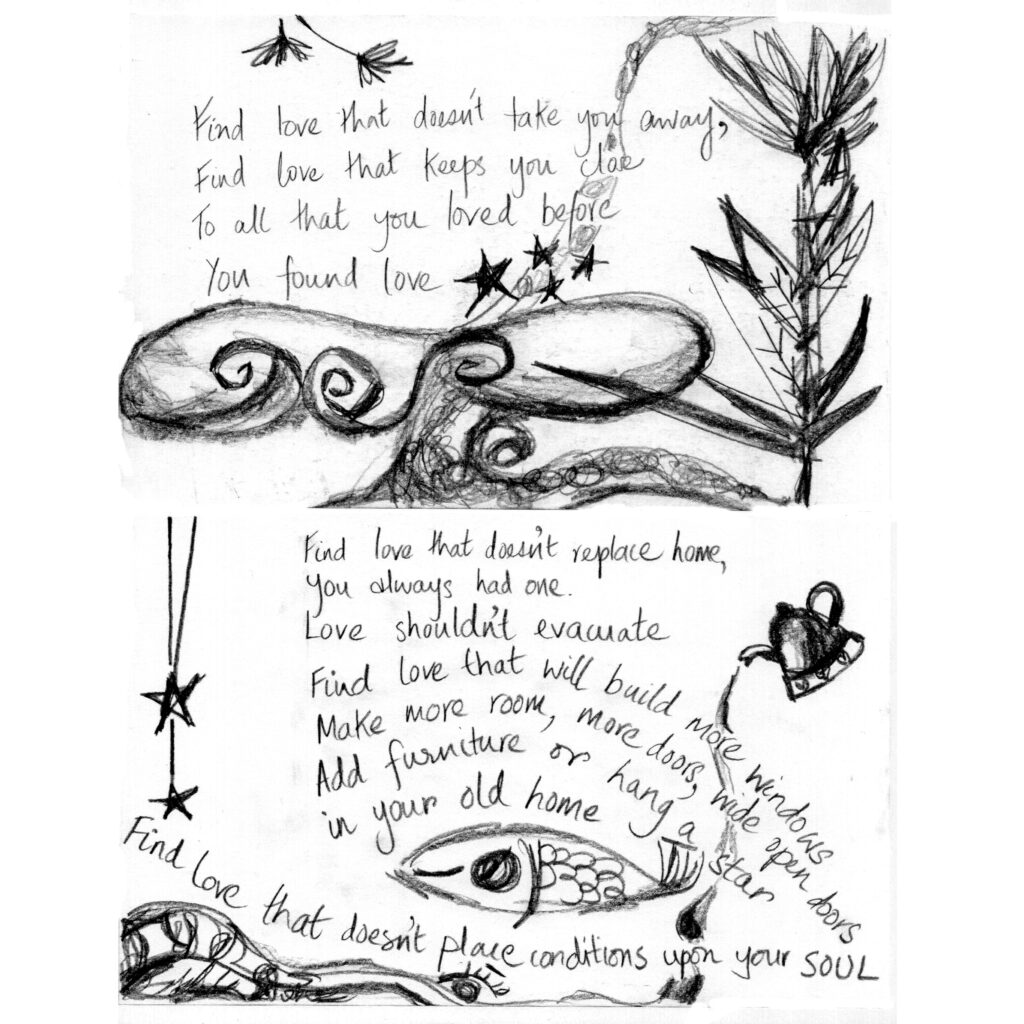 Find love that doesn't take you away,
Find love that keeps you close
To all that you loved before
You found love
Find love that doesn't replace home,
you always had one.
Love shouldn't evacuate
Find love that will build more windows
Make more room, more doors, wide open doors
Add furniture or hang a star
in your old home
Find love that doesn't place conditions upon your SOUL